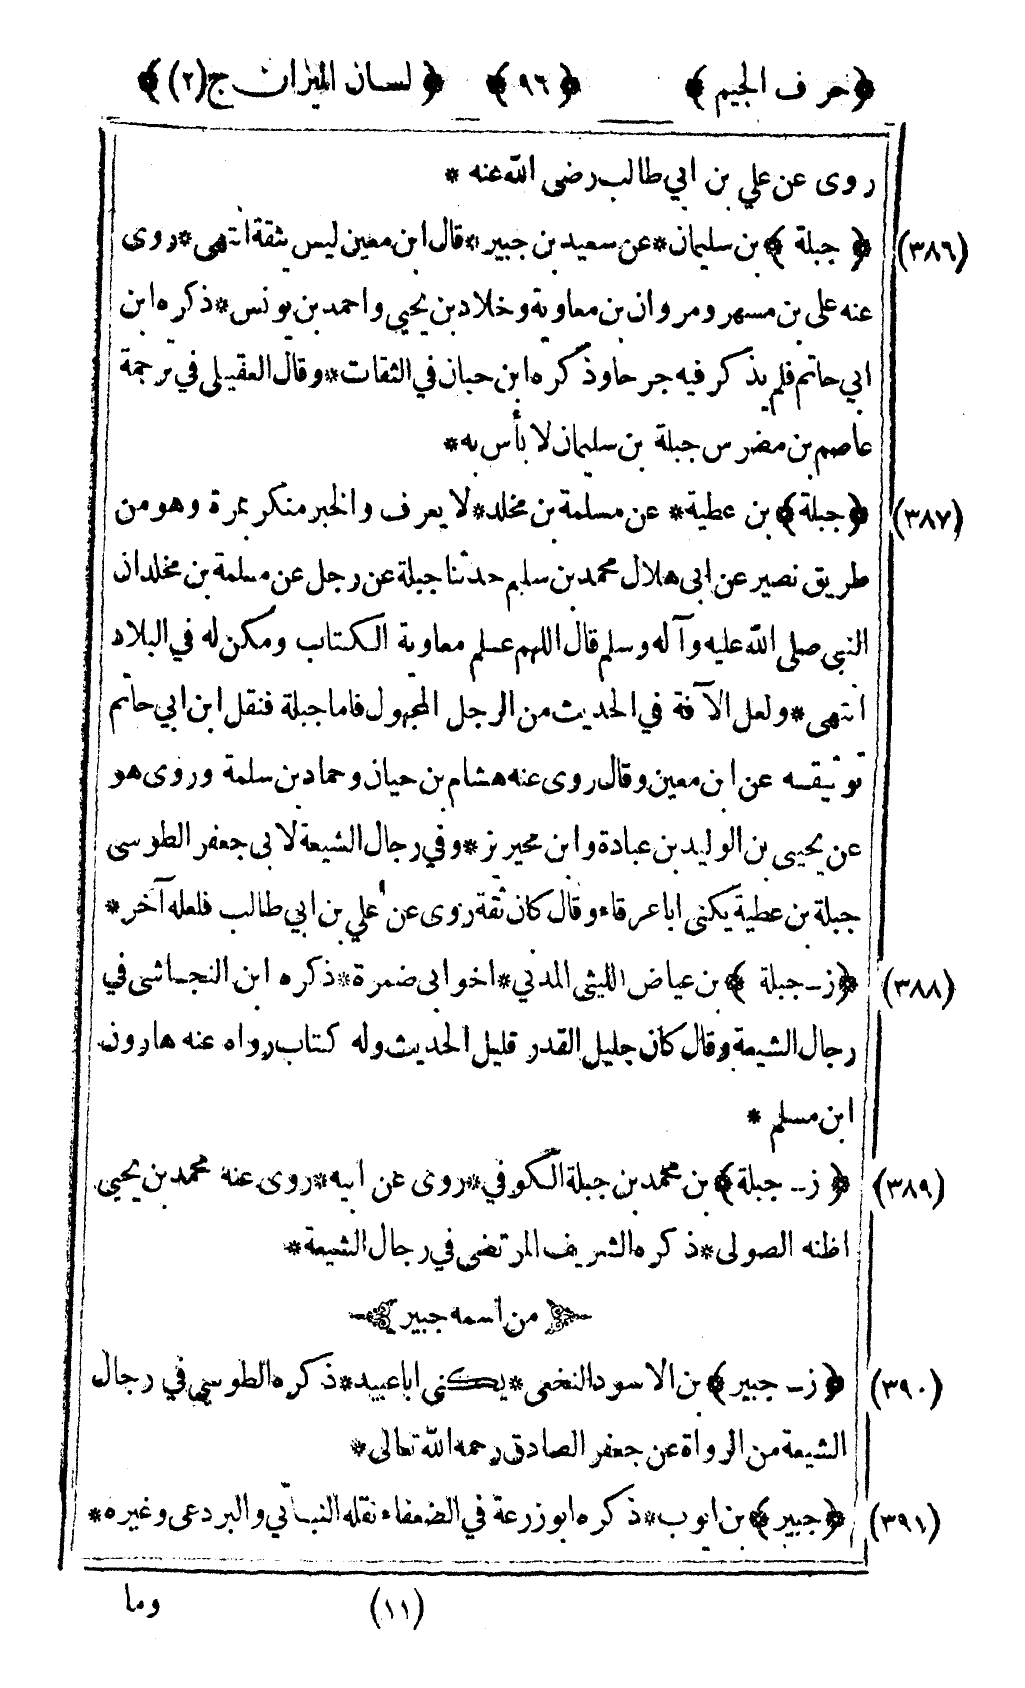 ﴿ حرف الجيم ﴾ ﴿ ٩٦ ﴾ ﴿ لسان الميزان ج (٢) ﴾
روى عن علي بن ابي طالب رضى الله عنه *
(٣٨٦) ﴿ جبلة ﴾ بن سليمان * عن سعيد بن جبير * قال ابن معين ليس بثقة انتهى * روى
عنه على بن مسهر ومروان بن معاوية وخلاد بن يحيى واحمد بن يونس * ذكره ابن
ابي حاتم فلم يذكر فيه جرحا وذكره ابن حبان في الثقات * وقال العقيلى في ترجمة
عاصم بن مضرس جبلة بن سليمان لا بأس به *
(٣٨٧) ﴿ جبلة ﴾ بن عطية * عن مسلمة بن مخلد * لا يعرف والخبر منكر بمرة وهو من
طريق نصير عن ابى هلال محمد بن سليم حدثنا جبلة عن رجل عن مسلمة بن مخلد ان
النبى صلى الله عليه وآله وسلم قال اللهم علم معاوية الكتاب ومكن له في البلاد
انتهى * ولعل الآفة في الحديث من الرجل المجهول فاما جبلة فنقل ابن ابي حاتم
توثيقه عن ابن معين وقال روى عنه هشام بن حيان وحماد بن سلمة وروى هو
عن يحيى بن الوليد بن عبادة وابن محيريز * وفي رجال الشيعة لابى جعفر الطوسى
جبلة بن عطية يكنى ابا عرقاء وقال كان ثقة روى عن علي بن ابي طالب فلعله آخر *
(٣٨٨) ﴿ ز ـ جبلة ﴾ بن عياض الليثى المدني * اخو ابى ضمرة * ذكره ابن النجاشى في
رجال الشيعة وقال كان جليل القدر قليل الحديث وله كتاب رواه عنه هارون
ابن مسلم *
(٣٨٩) ﴿ ز ـ جبلة ﴾ بن محمد بن جبلة الكوفي * روى عن ابيه * روى عنه محمد بن يحيى
اظنه الصولى * ذكره الشريف المرتضى في رجال الشيعة *
من اسمه جبير
(٣٩٠) ﴿ ز ـ جبير ﴾ بن الاسود النخعى * يكنى ابا عبيد * ذكره الطوسي في رجال
الشيعة من الرواة عن جعفر الصادق رحمه الله تعالى *
(٣٩١) ﴿ جبير ﴾ بن ايوب * ذكره ابو زرعة في الضعفاء نقله النباتي والبردعى وغيره *
(١١) وما